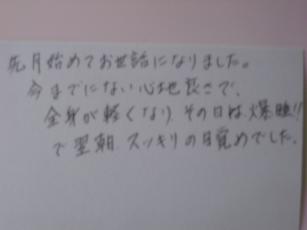 先月始めてお世話になりました。
今までにない心地良さで、
全身が軽くなり、その日は、爆睡!!
で翌朝、スッキリの目覚めでした。